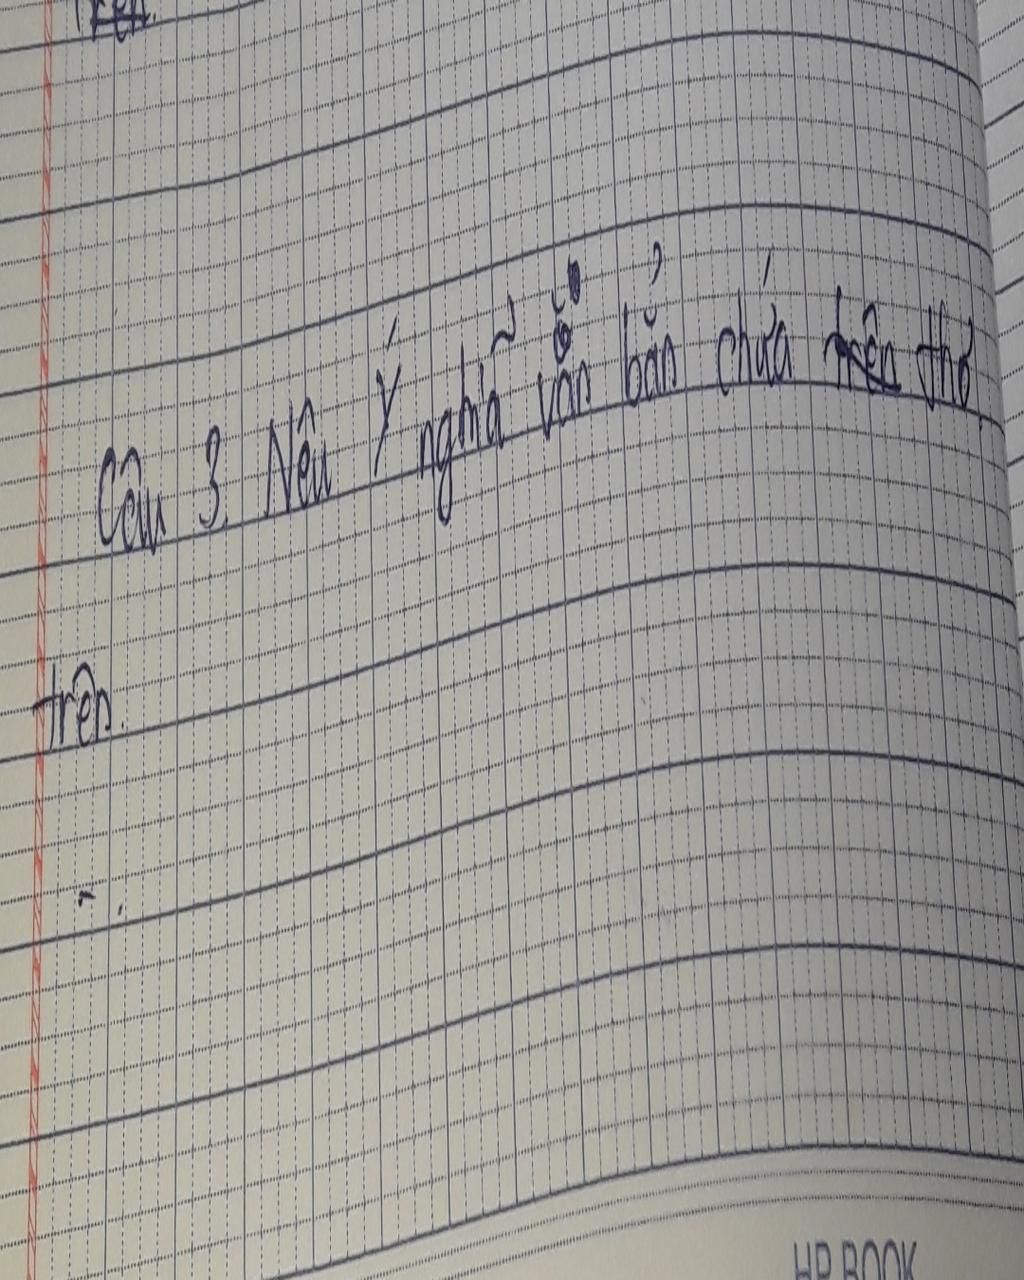 trên.
Câu 3. Nêu Ý nghĩa văn bản chứa trên thơ
trên.
HP BOOK